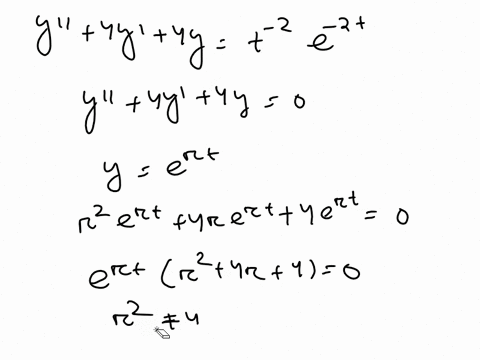 y'' + 4y' + 4y = t^{-2} e^{-2t}
y'' + 4y' + 4y = 0
y = e^{rt}
r^2 e^{rt} + 4r e^{rt} + 4e^{rt} = 0
e^{rt} (r^2 + 4r + 4) = 0
r^2 + 4